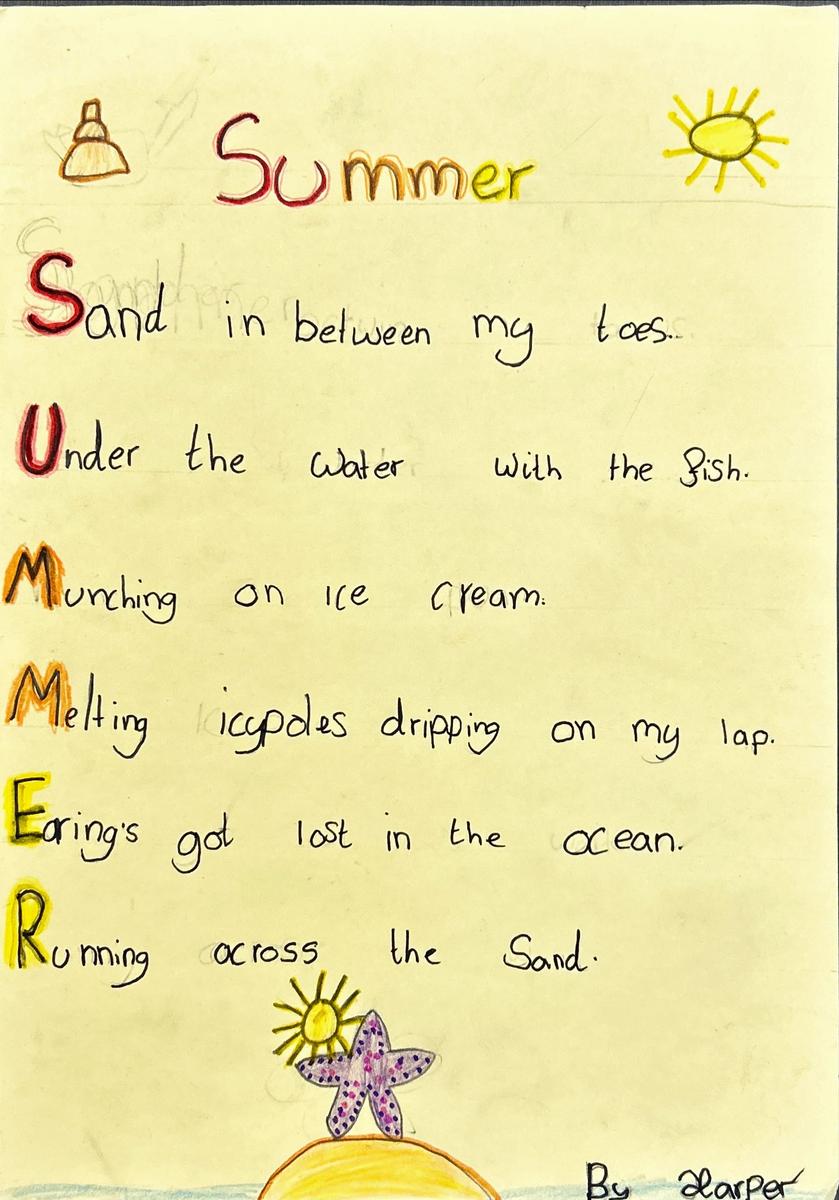 Summer
Sand in between my toes..
Under the water with the fish.
Munching on ice cream.
Melting icypoles dripping on my lap.
Earing's got lost in the ocean.
Running across the Sand.
By Harper